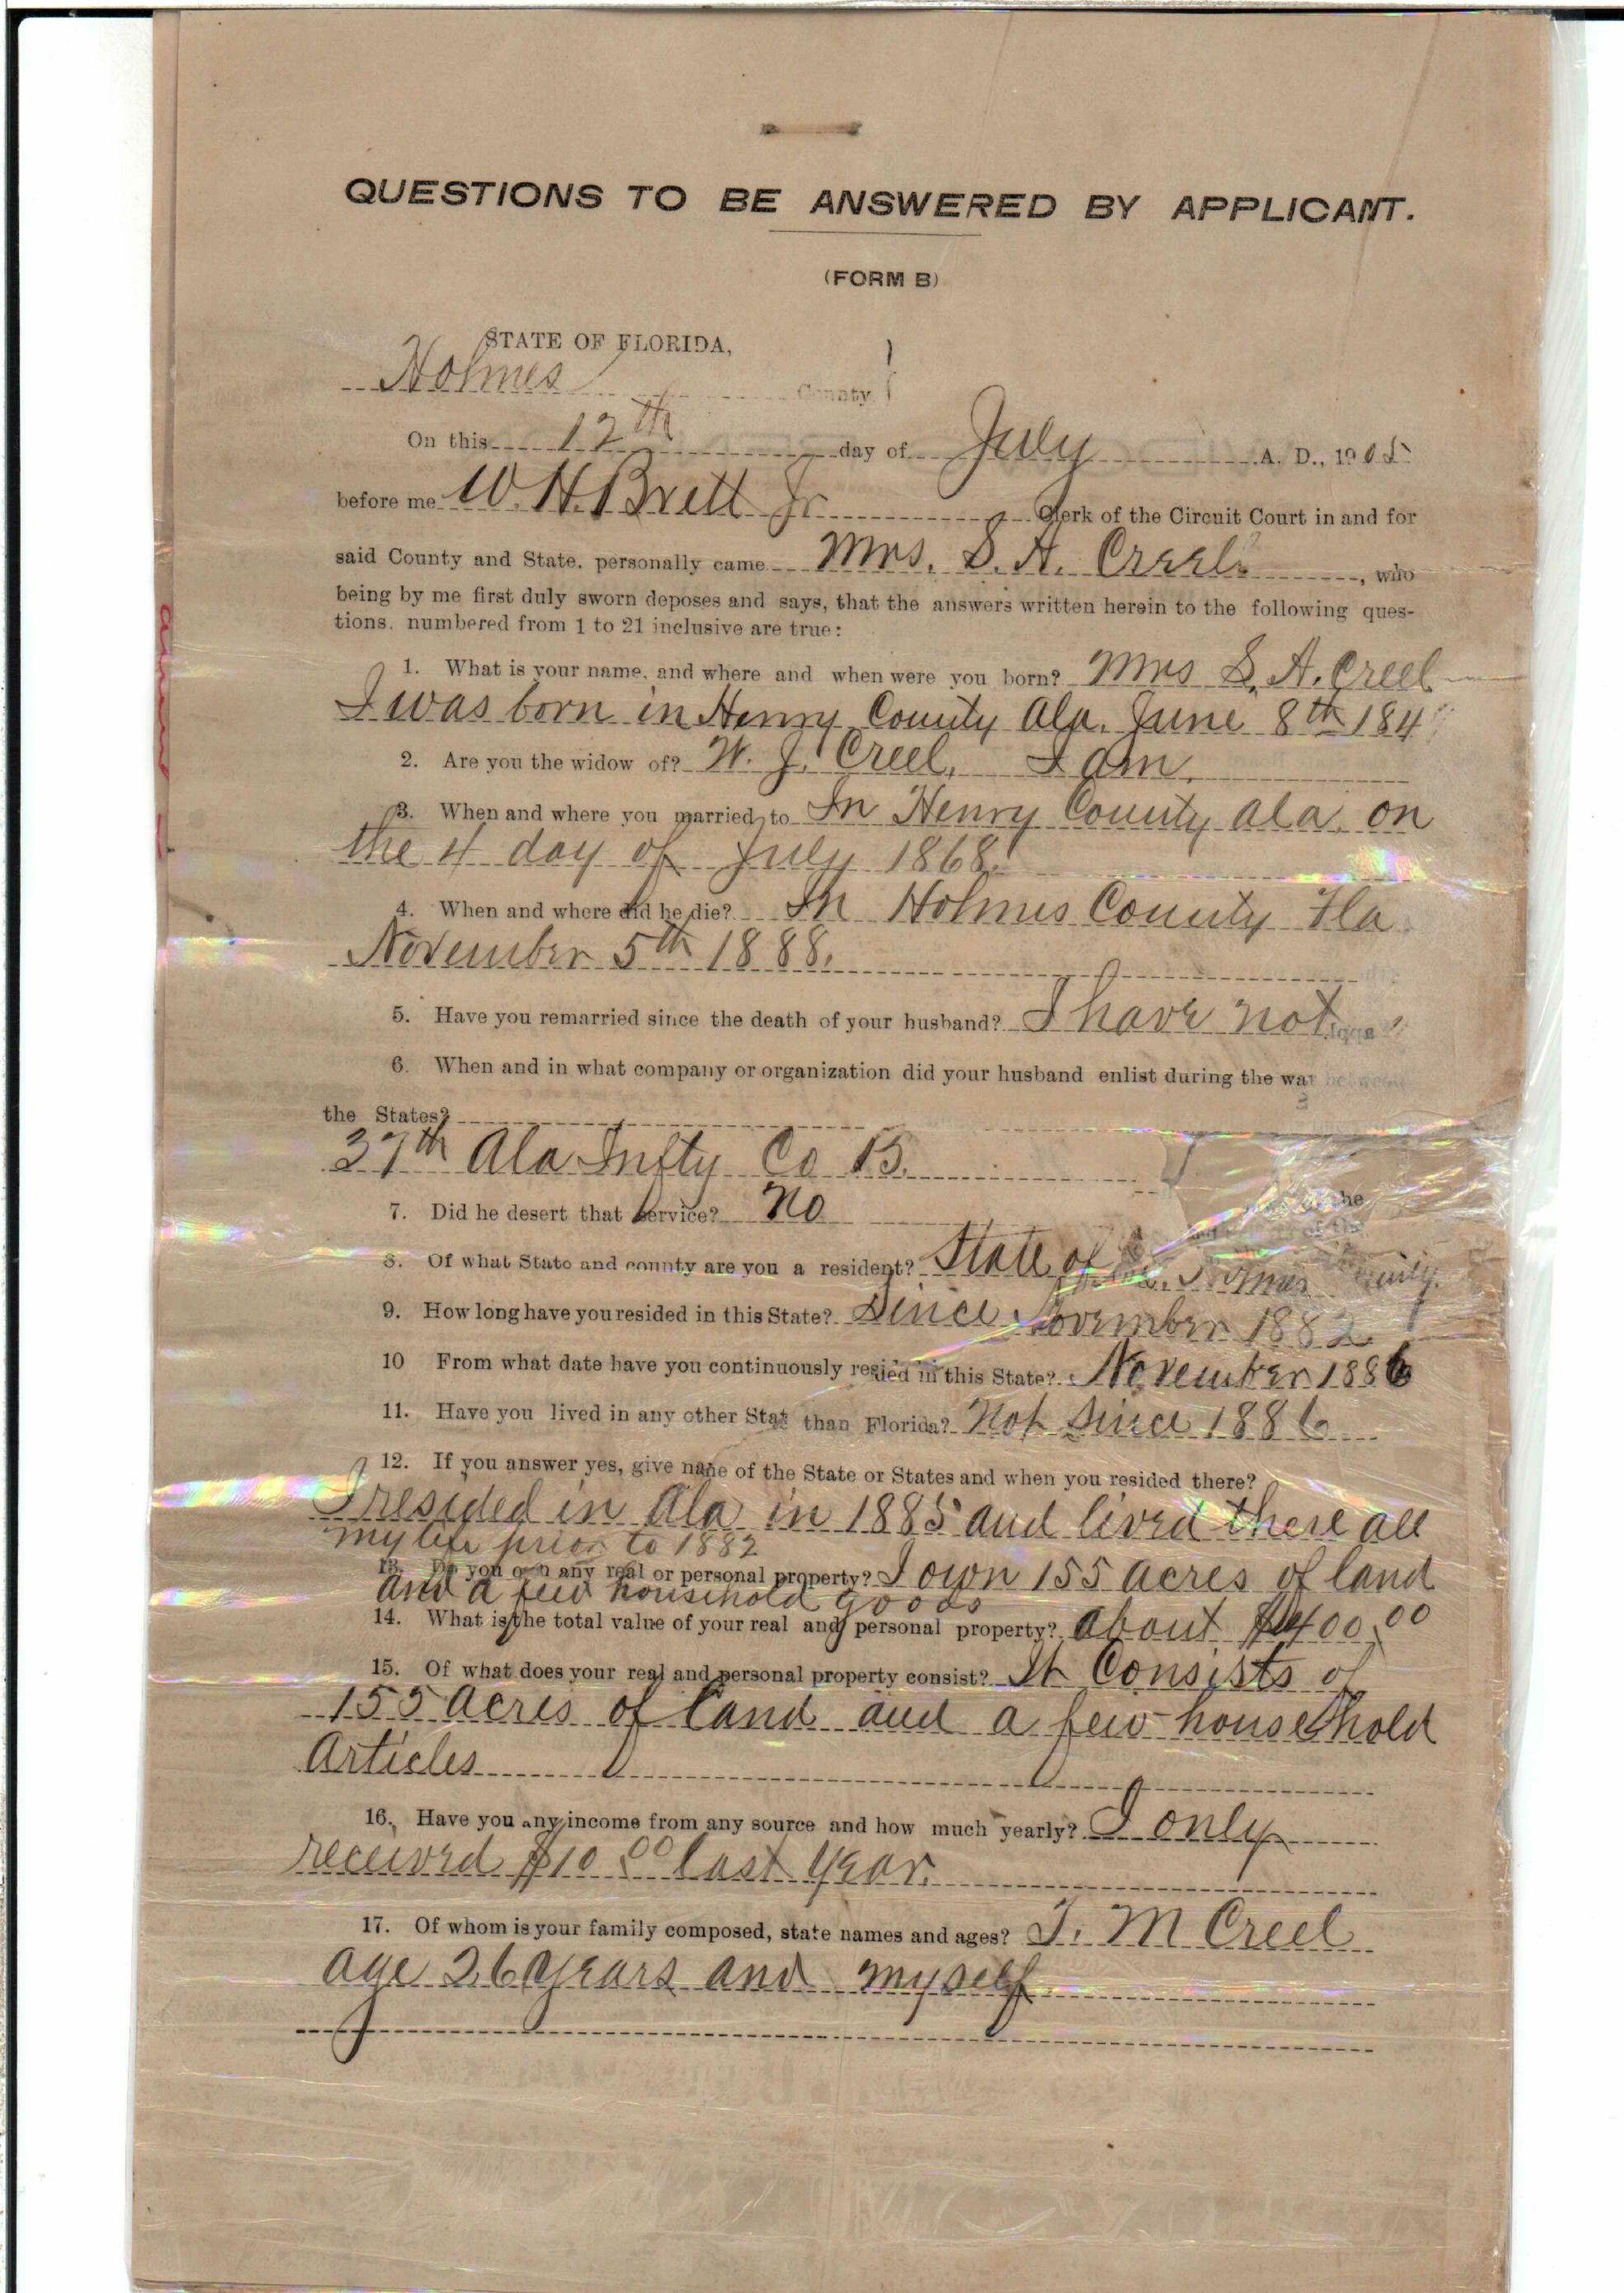 QUESTIONS TO BE ANSWERED BY APPLICANT.
(FORM B)
STATE OF FLORIDA,
Holmes County
On this 12th day of July A. D., 1905
before me W. H. Brett Jr Clerk of the Circuit Court in and for
said County and State. personally came Mrs. S. A. Creel, who
being by me first duly sworn deposes and says, that the answers written herein to the following ques-
tions. numbered from 1 to 21 inclusive are true:
1. What is your name, and where and when were you born? Mrs S. A. Creel
I was born in Henry County Ala. June 8th 184
2. Are you the widow of? W. J. Creel. I am.
3. When and where you married to In Henry County Ala. on
the 4 day of July 1868.
4. When and where did he die? In Holmes County Fla
November 5th 1888.
5. Have you remarried since the death of your husband? I have not
6. When and in what company or organization did your husband enlist during the war between
the States?
37th Ala Infty Co B.
7. Did he desert that service? No
8. Of what State and county are you a resident? State of
9. How long have you resided in this State? Since November 1882
10 From what date have you continuously resided in this State? November 1886
11. Have you lived in any other Stat than Florida? Not since 1886
12. If you answer yes, give name of the State or States and when you resided there?
I resided in Ala in 1885 and lived there all
my life prior to 1882
13. Do you own any real or personal property? I own 155 acres of land
and a few household goods
14. What is the total value of your real and personal property? About $400.00
15. Of what does your real and personal property consist? It Consists of
155 acres of land and a few household
Articles
16. Have you any income from any source and how much yearly? I only
received $10.00 last year.
17. Of whom is your family composed, state names and ages? T. M Creel
age 26 years and myself